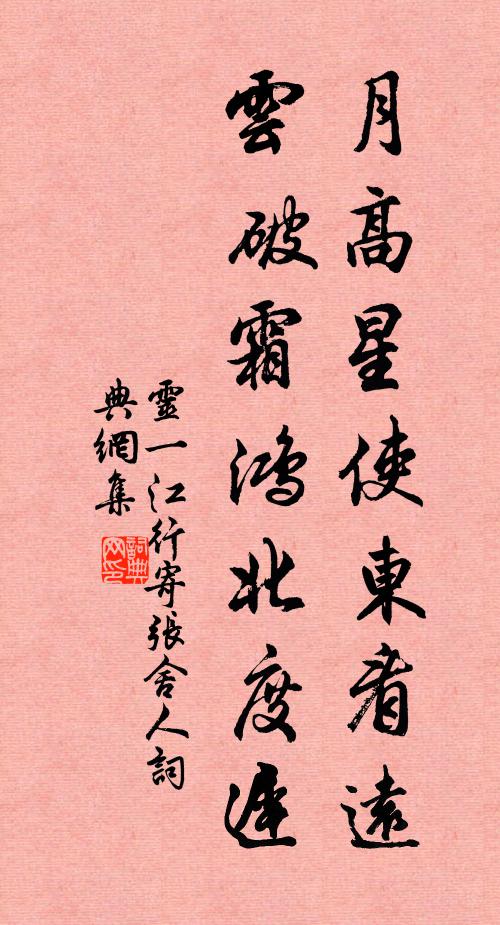 月高星使東看遠
雲破霜鴻北度遲
靈一江行寄張舍人詞
典網集
詞典
网印